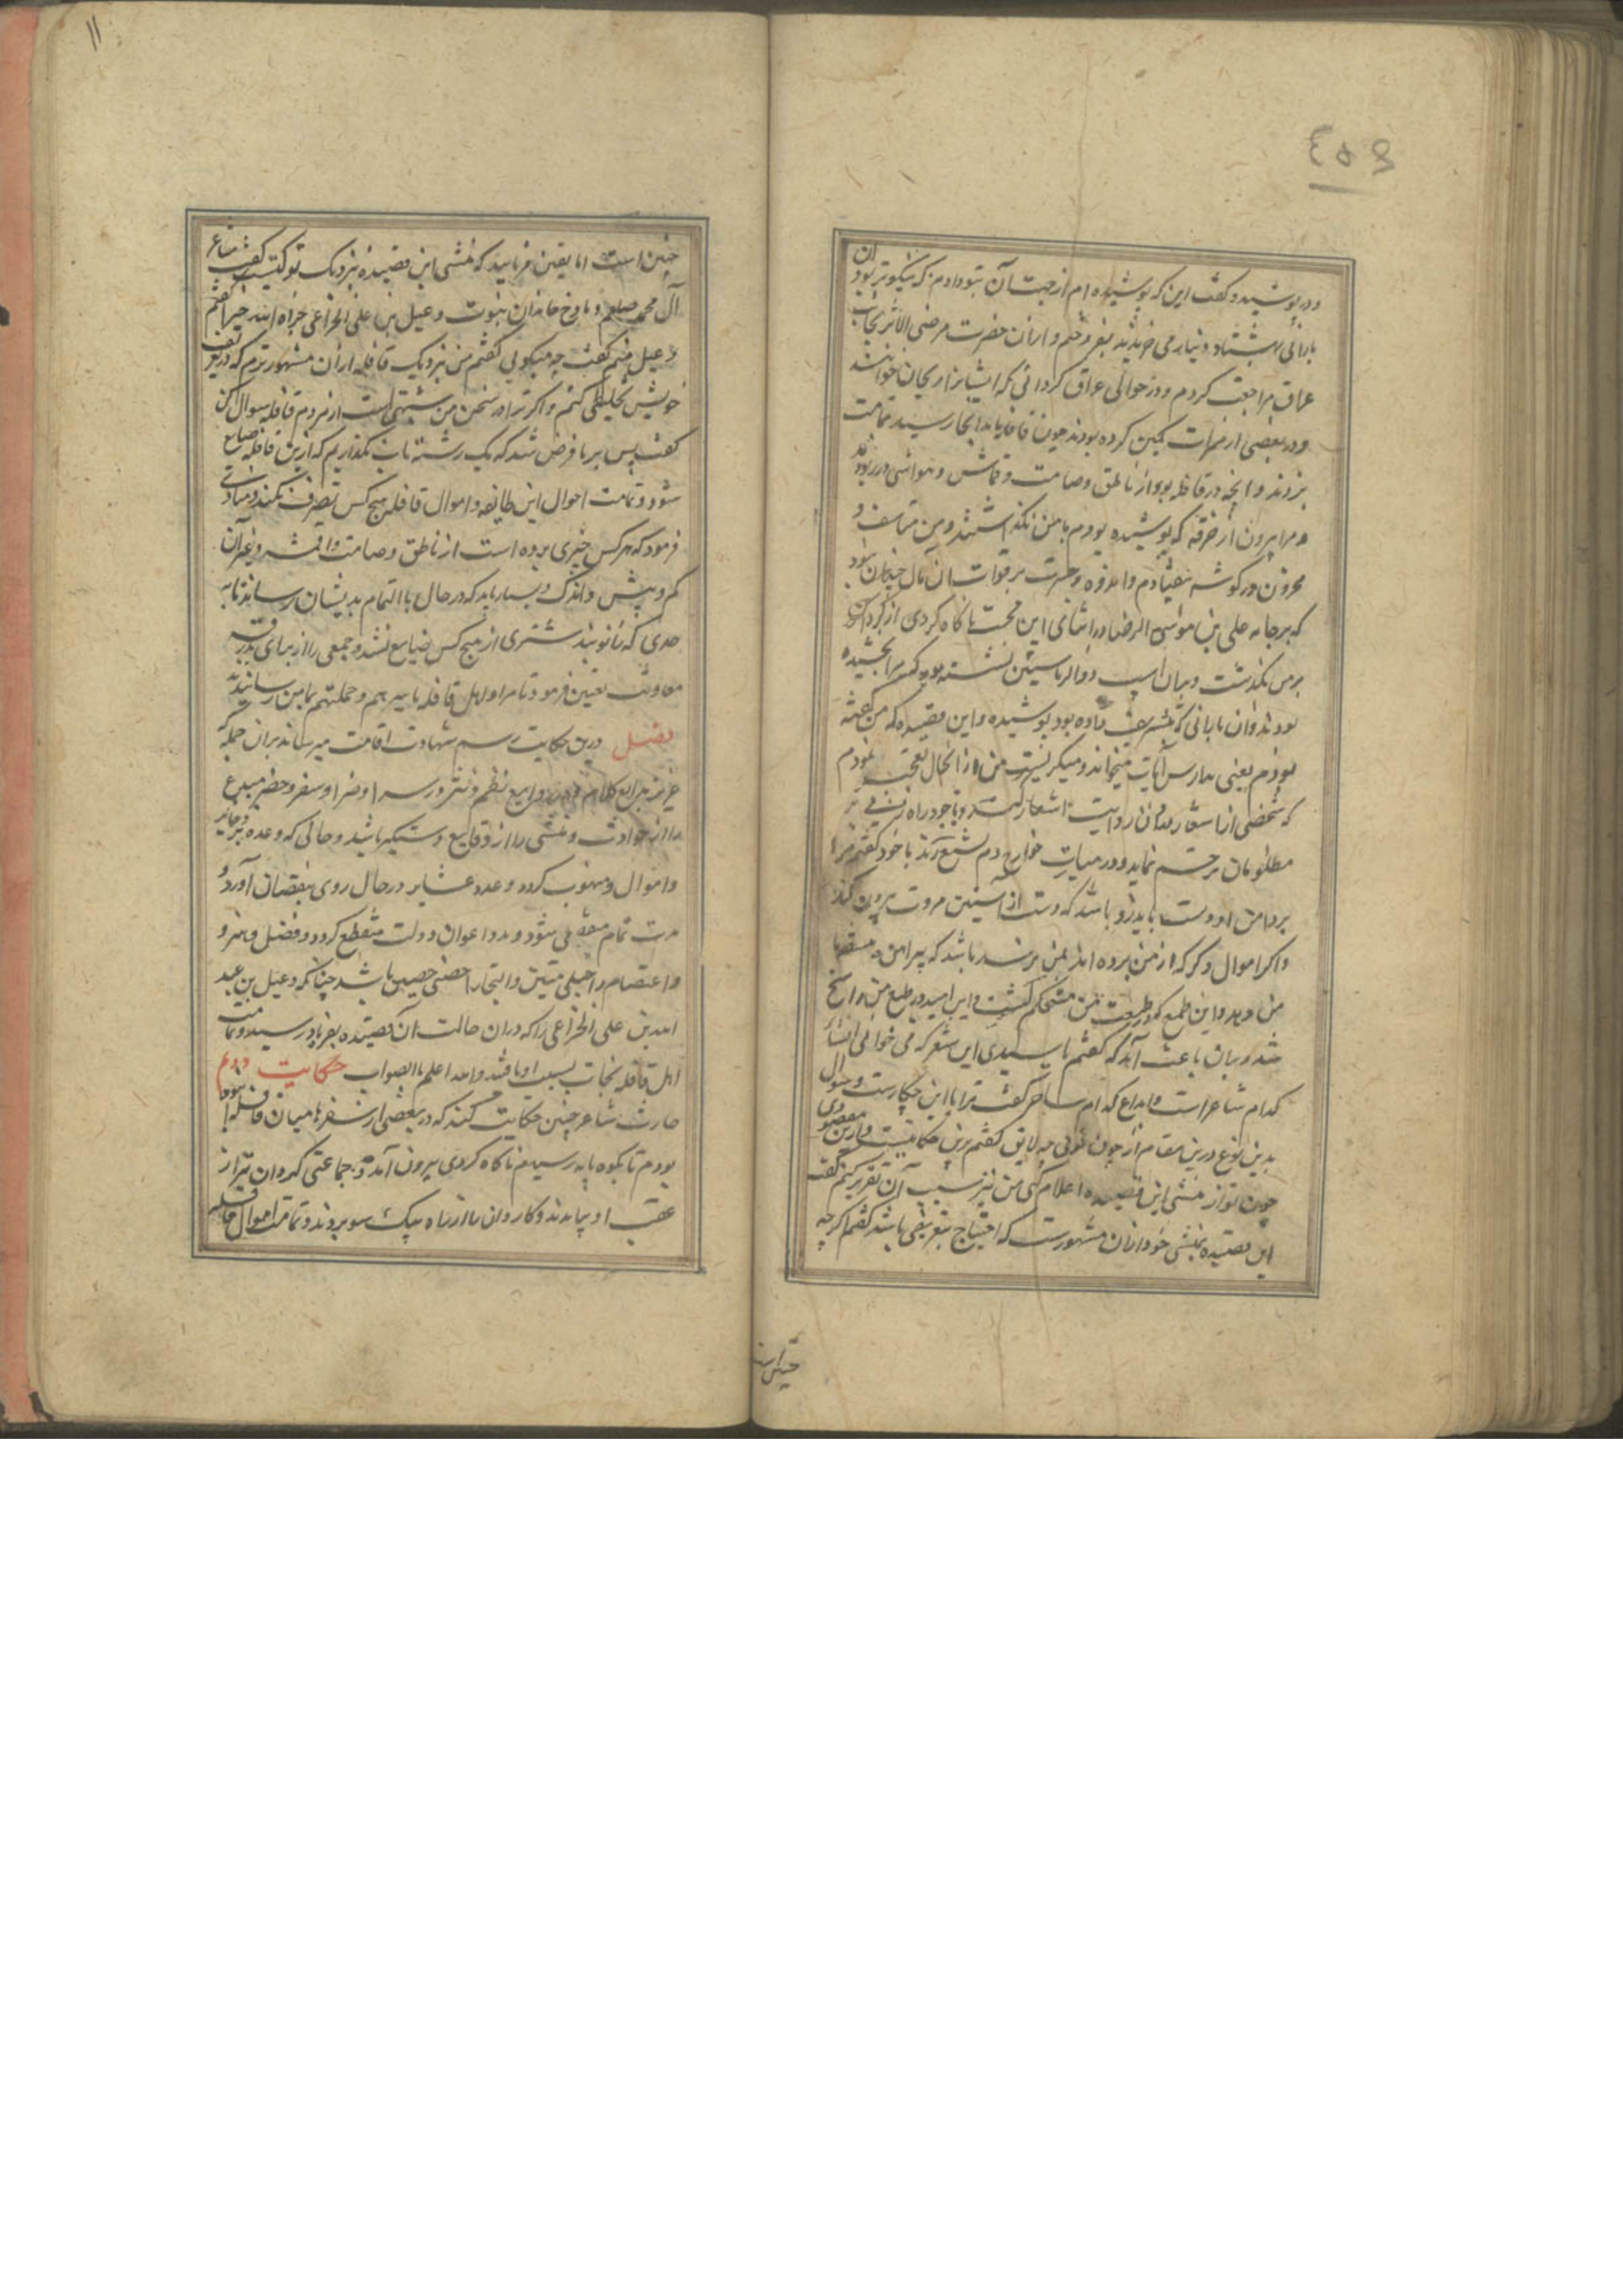 ۴۵۹
در پوشید و گفت این که پوشیده‌ام از جهت آن بتو دادم که نیکوتر بود آن
بارانی بهشتاد دینار می خریدند بفروختم و از آن حضرت مرضی الاثر بجانب
عراق مراجعت کردم و در حوالی عراق کردانی که ایشانرا خوانند
و در بعضی از ممرات کمین کرده بودند چون قافله ما بدانجا رسید تمامت
بزدند و آنچه در قافله بود از ناطق و صامت و قماش و مواشی در ربودند
و مرا بیرون از خرقه که پوشیده بودم با من نگذاشتند و من متاسف و
محزون در گوشه بیفتادم و اندوه و حسرت بر فوات آن مال چندان نبود
که بر جامه علی بن موسی الرضا در اثنای این محنت ناگاه کردی از کردان
بر من بگذشت و بران اسپ نشسته بود که مرا بخشیده
بودند و آن بارانی که بتشریف داده بود پوشیده و این قصیده که من گفته
بودم یعنی مدارس آیات میخواند و میگریست من از آن حال تعجب نمودم
که شخصی روایت اشعار کند و با وجود راه زنی بر
مظلومان ترحم نماید و در میان خوارج دم تشیع زند با خود گفتم مرا
بر دامن او دست باید زد باشد که دست از آستین مروت بیرون کند
و اگر اموال دگر که از من برده‌اند بمن نرسد باشد که پیراهن
من دهد و این طمع که در طبیعت من مستحکم گشت و این امید در طبع من راسخ
شد بران باعث آمد که گفتم یا سیدی این شعر که می خوانی انشاء
کدام شاعر است و ابداع کدام ساحر گفت ترا با این چکارست و سوال
بدین نوع درین مقام از چون توئی چه لایق گفتم درین حکایتیست و ازین مقصودی
چون تو از منشی این قصیده اعلام کنی من نیز سبب آن تقریر کنم گفت
این قصیده بمنشی خود از آن مشهورست که احتیاج بتعریفی باشد گفتم اگرچه
چنین است
۱۱
چنین است اما یقین فرمایید که منشی این قصیده بنزدیک تو کیست گفت شاعر
آل محمد صلعم و مادح خاندان نبوت دعبل بن علی الخزاعی جزاه الله خیرا گفتم
دعبل منم گفت چه میگویی گفتم من نزدیک قافله از آن مشهورترم که در تعریف
خویش تخلیطی کنم و اگر ترا در سخن من شبهتی است از مردم قافله سوال کن
گفت پس بر ما فرض شد که یک رشته تاب نگذاریم که ازین قافله ضایع
شود و تمامت احوال این طایفه و اموال قافله هیچ کس تصرف نکند و منادی
فرمود که هر کس چیزی برده است از ناطق و صامت و اقمشه و غیر آن
کم و بیش و اندک و بسیار باید که در حال با التمام بدیشان رسانند تا به
حدی که زانوبند شتری از هیچ کس ضایع نشد و جمعی را از برای بدرقه
معاونت تعیین فرمود تا مرا و اهل قافله باسرهم و جملتهم بمامن رسانیدند
فصل درین حکایت رسم شهادت اقامت میرساند بر آن جمله
بدایع کلام و روایع نظم و نثر در سرا و ضرا و سفر و حضر مبدع
را از حوادث و منشی را از وقایع دستگیر باشد و حالی که وعده
و اموال و منهوب گردد و عدد عشایر در حال روی بنقصان آورد و
مدت تمام منقضی شود و مدد اعوان دولت منقطع گردد و فضل و هنر و
و اعتصام را حبلی متین و التجا را حصنی حصین باشد چنانکه دعبل بن عبد
الله بن علی الخزاعی را که دران حالت آن قصیده بفریاد رسید و تمامت
اهل قافله نجات بسبب او یافتند والله اعلم بالصواب حکایت دوم
حارث شاعر چنین حکایت کند که در بعضی از سفرها میان قافله
بودم تا بکوه پایه رسیدم ناگاه کردی بیرون آمد و جماعتی کردان نیز از
عقب او بیامدند و کاروان ما از راه بیک سو بردند و تمامت اموال قافله